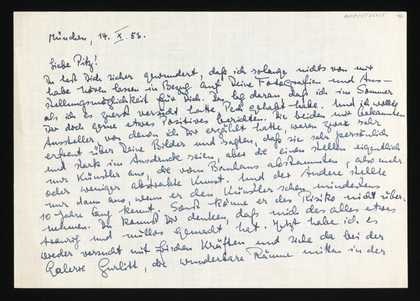 München, 14. X. 56.
Liebe Pitz!
Du hast Dich sicher gewundert, daß ich solange nichts von mir
habe hören lassen in Bezug auf Deine Fotografien und Aus-
stellungsmöglichkeit für Dich. Das lag daran daß ich im Sommer
als ich es zuerst versucht hatte Pech gehabt habe. Und ich wollte
Dir doch gerne etwas Positives berichten. Die beiden mir bekannten
Aussteller, von denen ich Dir erzählt hatte waren zwar sehr
erfreut über Deine Bilder und sagten, daß sie sehr persönlich
und stark im Ausdruck seien, aber die einen stellen eigentlich
nur Künstler aus, die vom Bauhaus abstammten, also mehr
oder weniger abstrakte Kunst. Und der Andere stellte
nur dann aus, wenn er den Künstler schon mindestens
10 Jahre lang kennt. Sonst könne er das Risiko nicht über-
nehmen. Du kannst Dir denken, daß mich das alles etwas
traurig und mutlos gemacht hat. Jetzt habe ich es
wieder versucht mit frischen Kräften und siehe da bei der
Galerie Gurlitt, die wunderbare Räume mitten in der